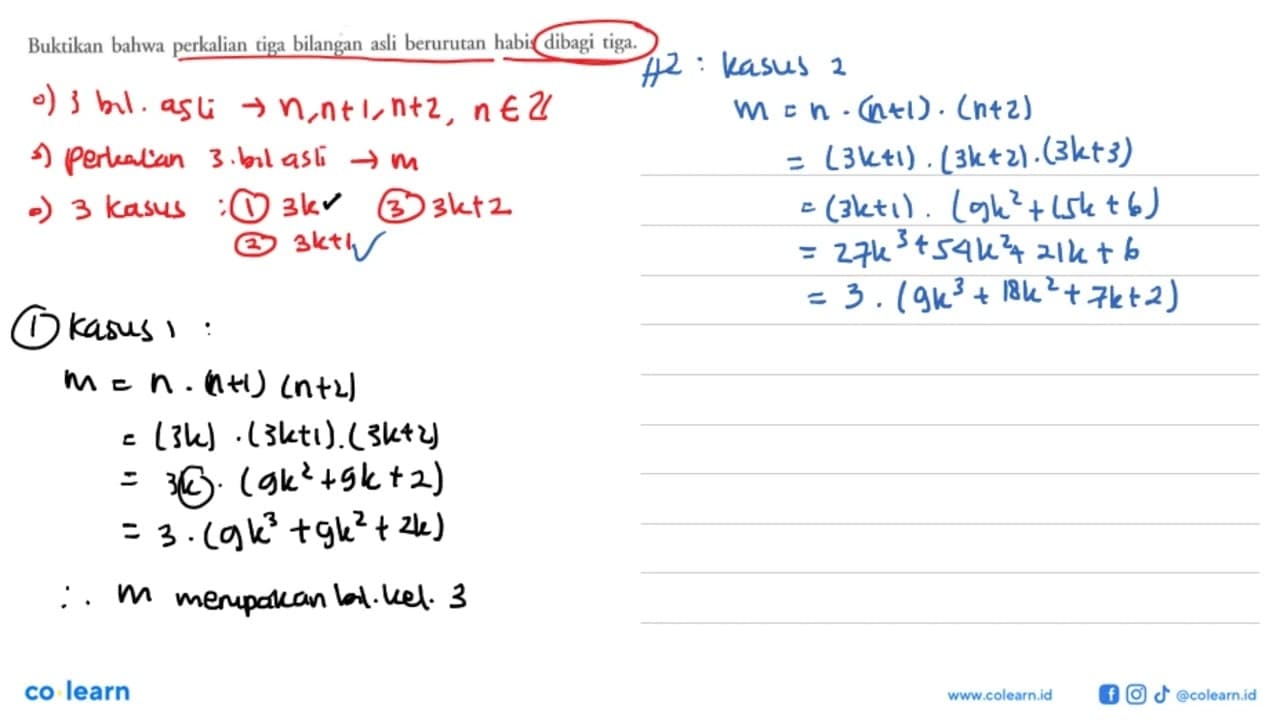 Buktikan bahwa perkalian tiga bilangan asli berurutan habis dibagi tiga.
•) 3 bil. asli → n, n+1, n+2, n ∈ ℤ
•) perkalian 3.bil asli → m
•) 3 kasus : ① 3k ✓ ③ 3k+2
② 3k+1 ✓
① kasus 1 :
m = n . (n+1) (n+2)
= (3k) . (3k+1).(3k+2)
= 3k . (9k² + 9k + 2)
= 3 . (9k³ + 9k² + 2k)
∴ m merupakan bil. kel. 3
#2 : kasus 2
m = n . (n+1) . (n+2)
= (3k+1) . (3k+2) . (3k+3)
= (3k+1) . (9k² + 15k + 6)
= 27k³ + 54k² + 21k + 6
= 3 . (9k³ + 18k² + 7k + 2)
co learn
www.colearn.id @colearn.id